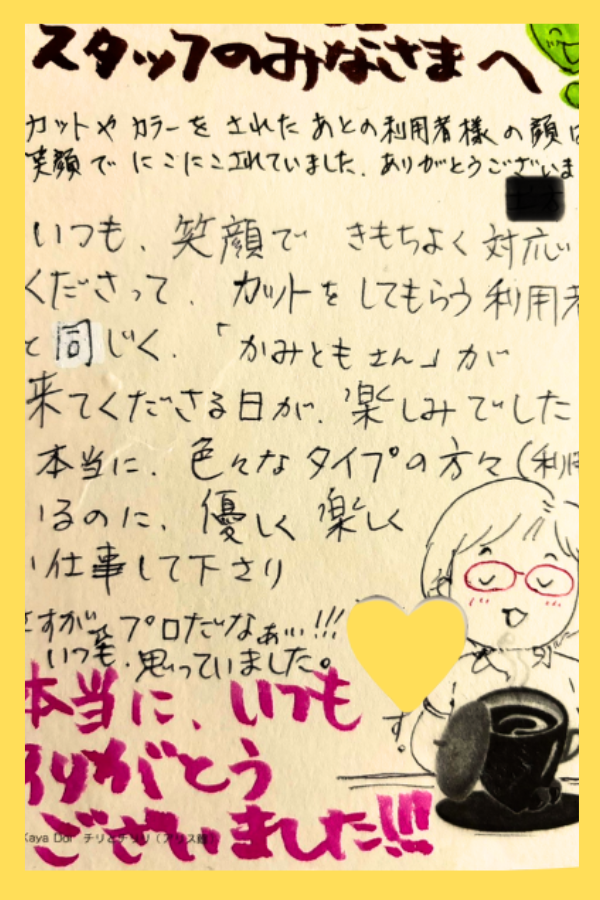 スタッフのみなさまへ
カットや カラーを された あとの利用者様 の 顔は
笑顔で にこにこされていました。ありがとうございま
いつも、笑顔で きもちよく 対応
くださって、カットを してもらう 利用者
と同じく、「かみとも さん」が
来てくださる日が、楽しみでした
本当に、色々な タイプの方々(利用
いるのに、優しく 楽しく
い仕事して下さり
さすが、プロだなぁ…!!!
いつも、思っていました。
す。
本当に、いつも
ありがとう
ございました!!!
Kaya Doi チリとチリリ(アリス館)